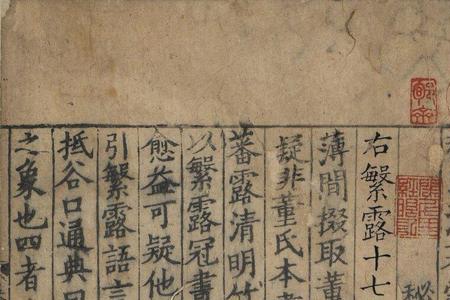 秘
右繁露十七
薄間掇取董
疑非董氏本書
蕃露清明竹
以繁露冠書
愈益可疑他
引繁露語言
抵谷口通典曰
之象也四者